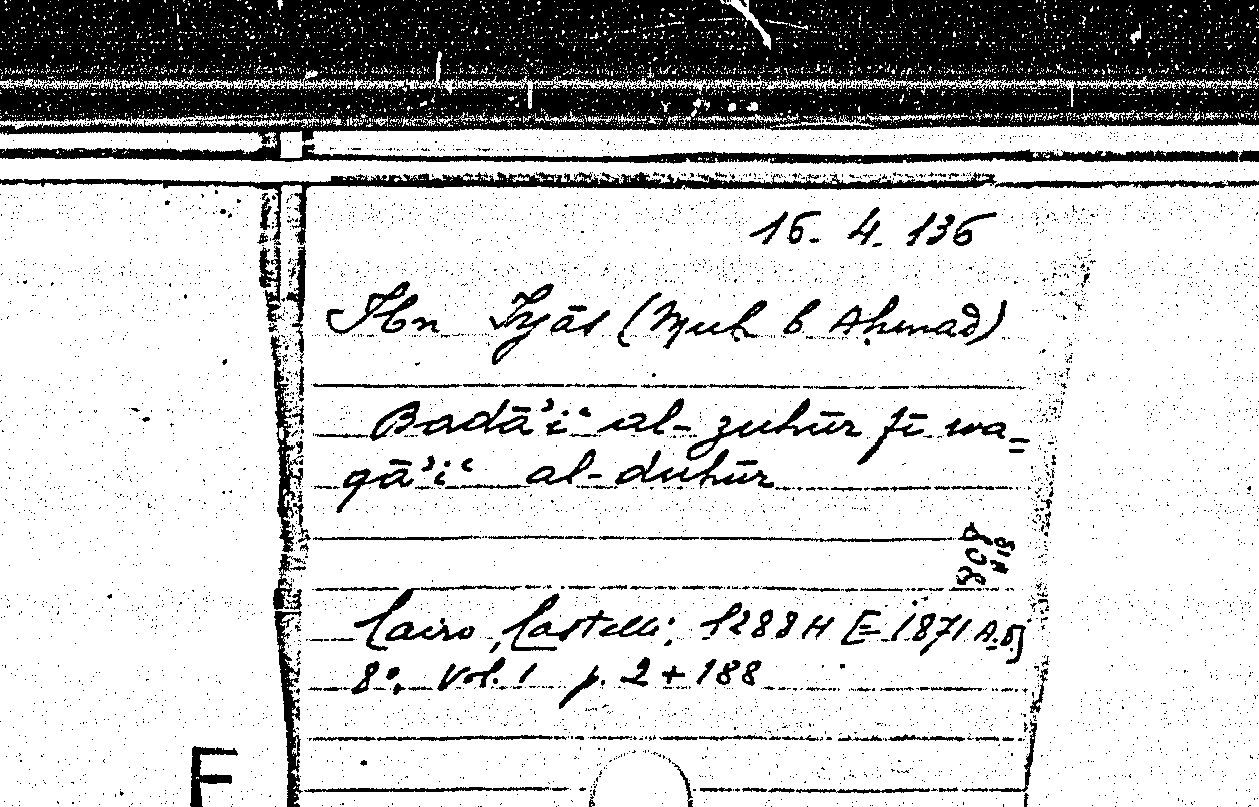 16. 4. 136
Ibn Iyās (Muḥ b Aḥmad)
Badā'i‘ al-zuhūr fī wa=
qā'i‘ al-duhūr
Cairo, Castelli; 1288 H [= 1871 A.D]
8°. Vol. 1 p. 2 + 188
E